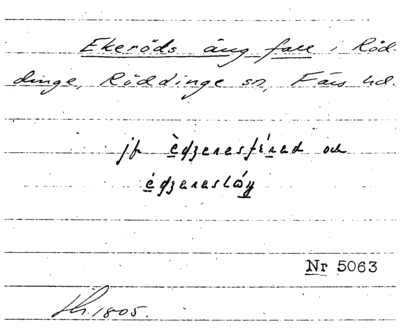 Ekeröds äng fall i Röd-
dinge, Röddinge sn, Färs hd.
jf èdzeresfírad och
édzereslǿg
Nr 5063
Sk. 1805.